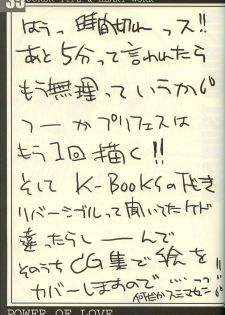 はうっ 時間切れっス!!
あと5分って言われたら
もう無理っていうか
つーかプリフェスは
もう1回描く!!
そして K-BOOKSの下さ
リバーシブルって聞いてたケド
違ったらしーんで
そのうちCG集で絵を
カバーしますので……っっ
POWER OF LOVE